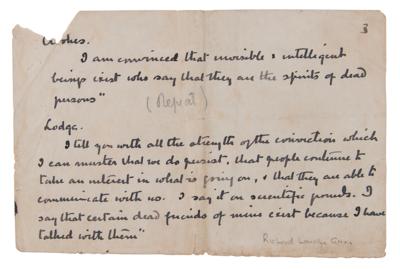 3
Crookes.
I am convinced that invisible & intelligent
beings exist who say that they are the spirits of dead
persons"
(Repeat)
Lodge.
I tell you with all the strength of the conviction which
I can muster that we do persist, that people continue to
take an interest in what is going on, & that they are able to
communicate with us. I say it on scientific grounds. I
say that certain dead friends of mine exist because I have
talked with them"
Richard